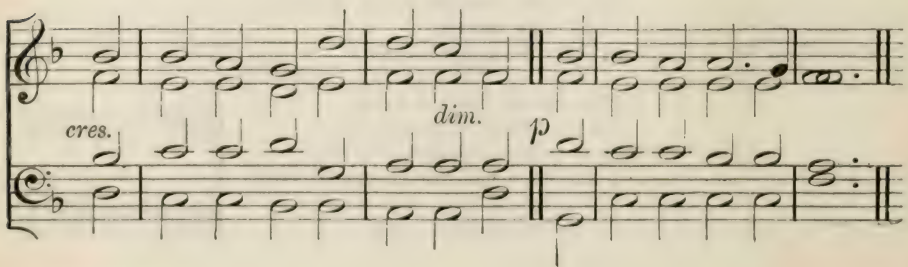 cres.
dim.
p